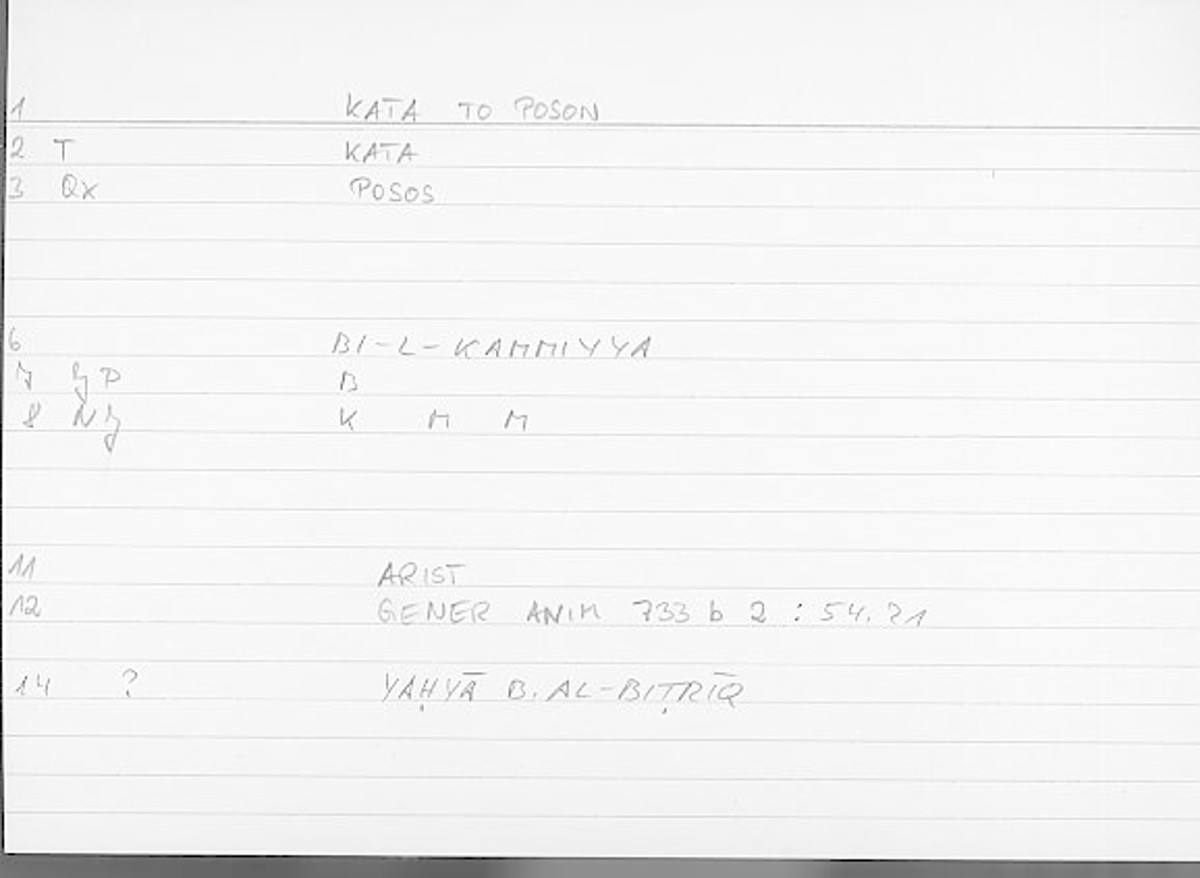 1 KATA TO POSON
2 T KATA
3 Qx POSOS
6 BI-L-KAMMIYYA
7 P B
8 K M M
11 ARIST
12 GENER ANIM 733 b 2 : 54.21
14 ? YAḤYĀ B. AL-BIṬRĪQ